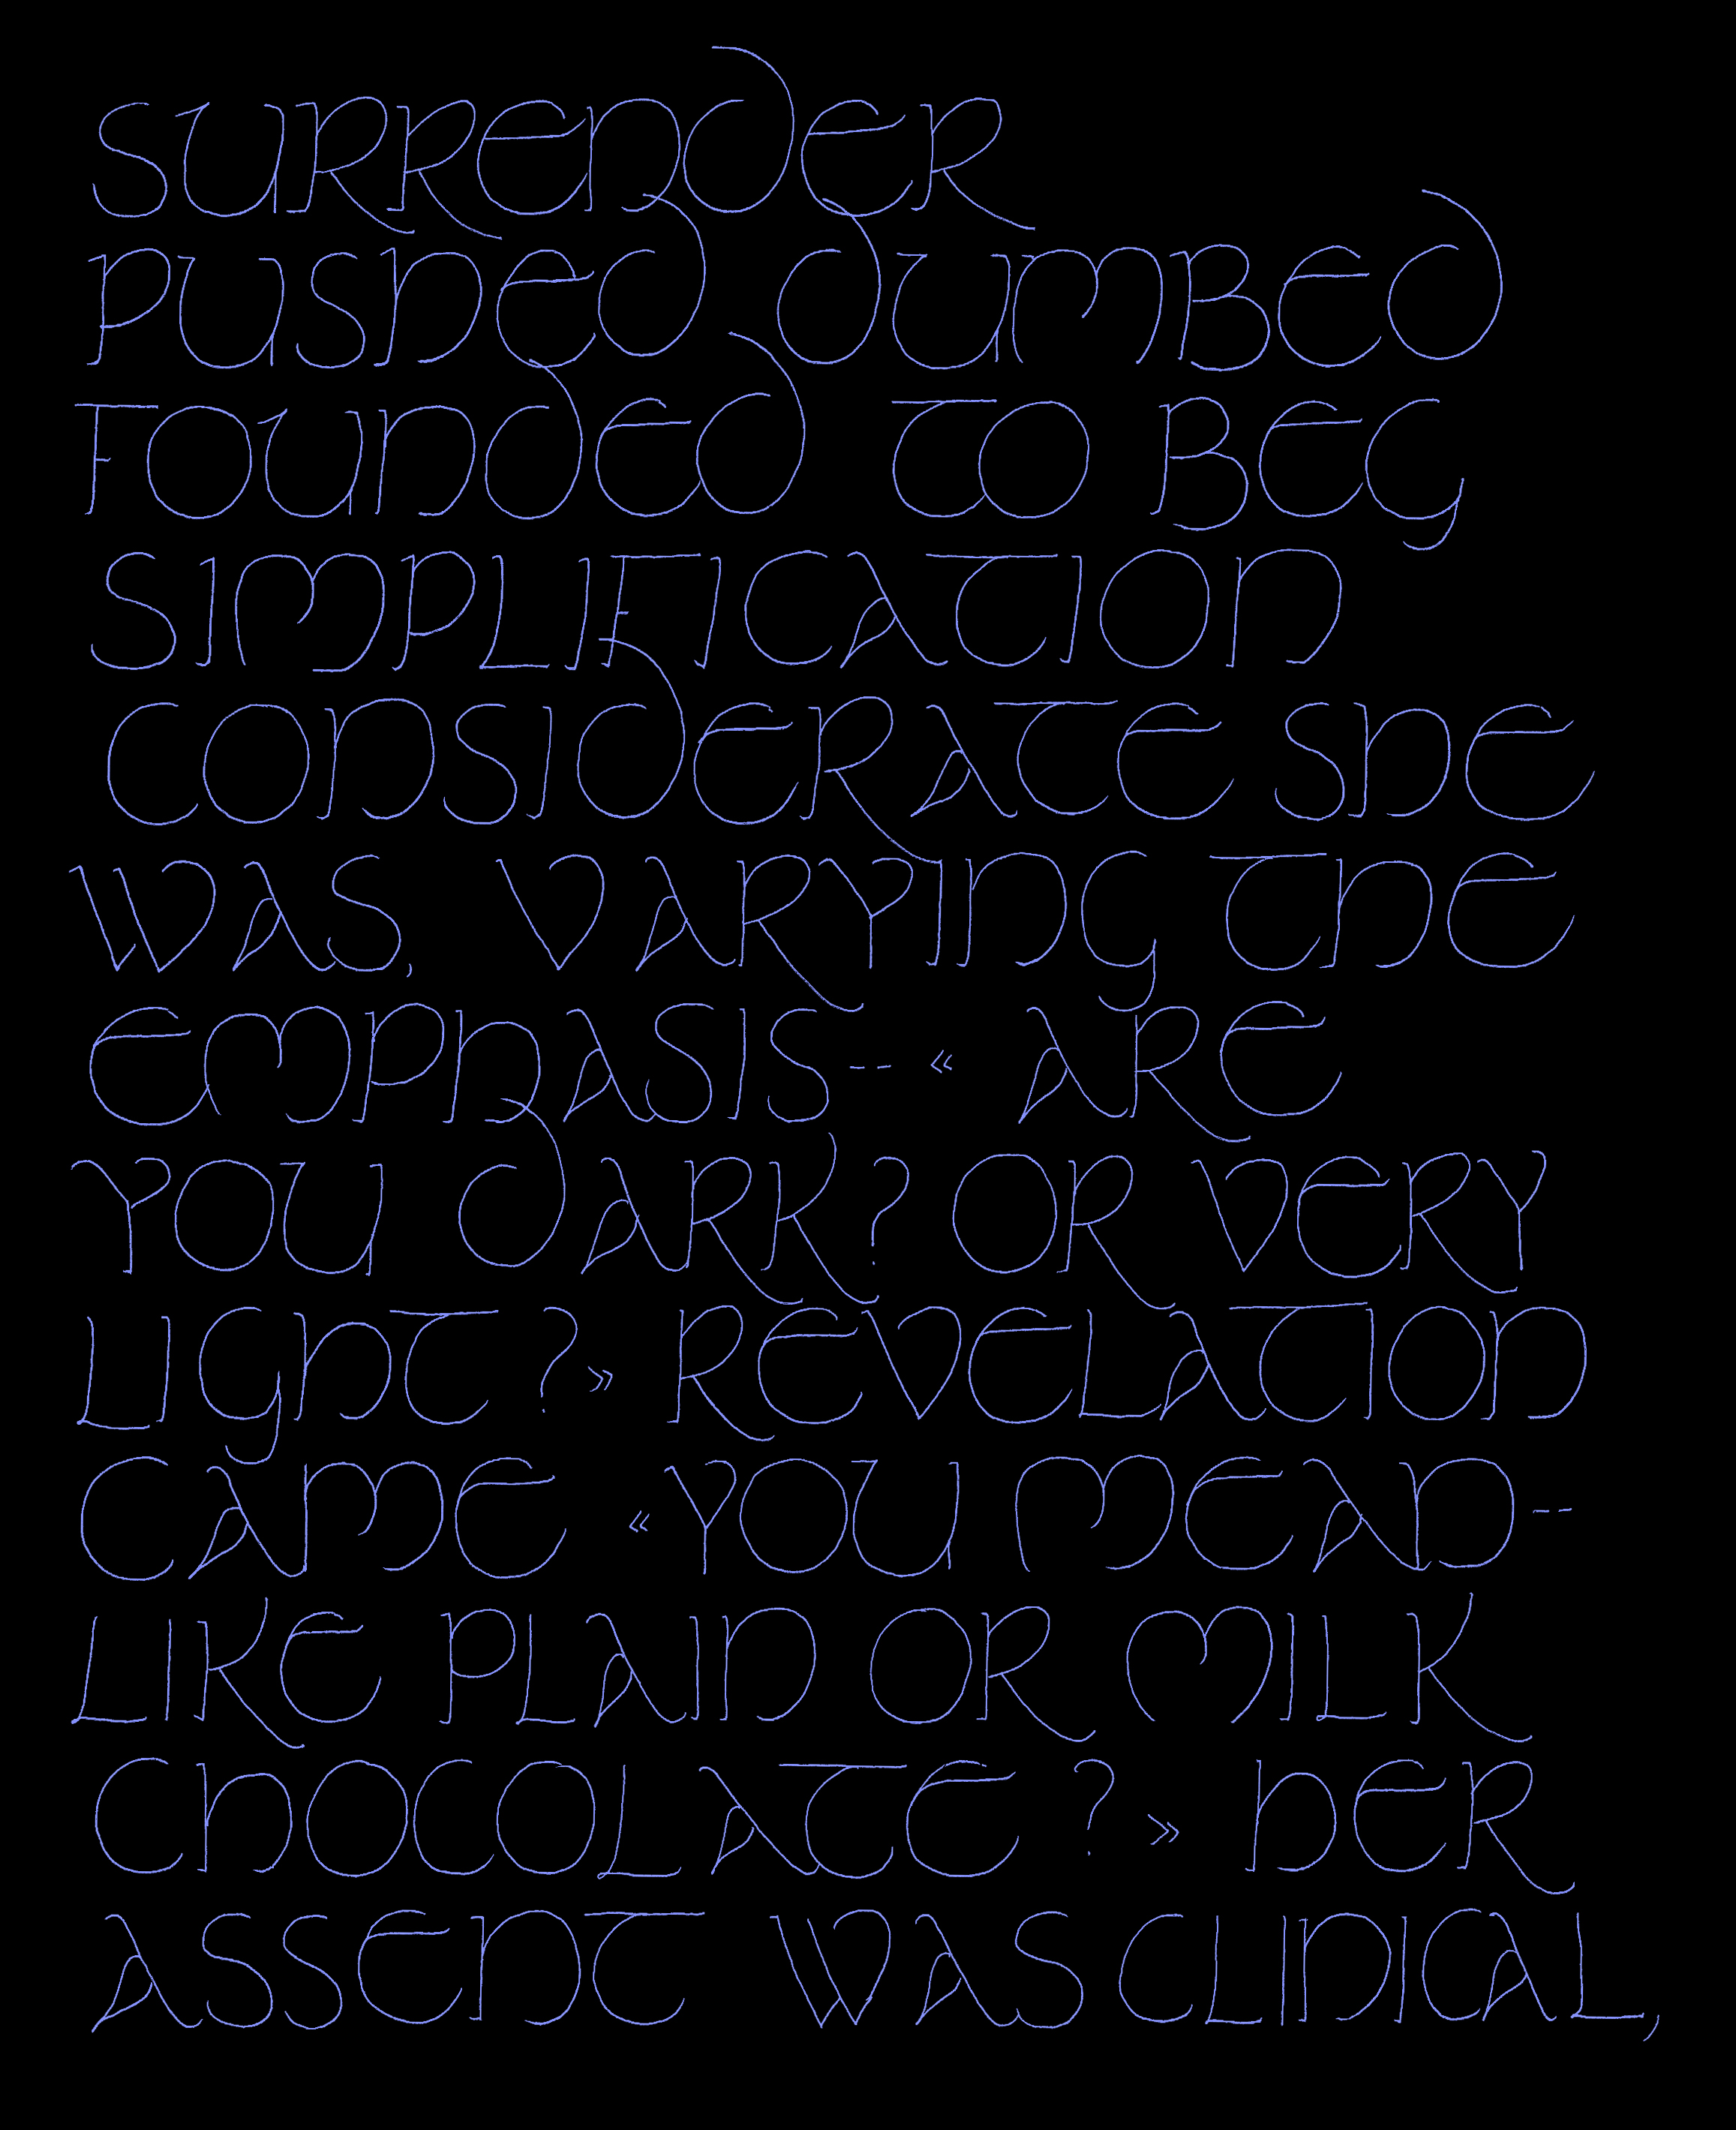 SURRENDER
PUSHED DUMBED
FOUNDED TO BEG
SIMPLIFICATION
CONSIDERATE SHE
WAS, VARYING THE
EMPHASIS-- « ARE
YOU DARK? OR VERY
LIGHT ?» REVELATION
CAME «YOU MEAN--
LIKE PLAIN OR MILK
CHOCOLATE ?» HER
ASSENT WAS CLINICAL,